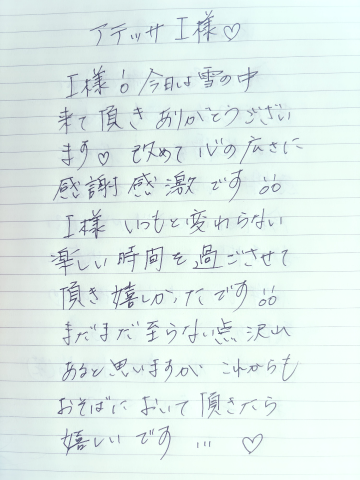 アテッサ I様♡
I様!! 今日は雪の中
来て頂きありがとうござい
ます♡ 改めて心の広さに
感謝感激です!!
I様 いつもと変わらない
楽しい時間を過ごさせて
頂き嬉しかったです!!
まだまだ至らない点沢山
あると思いますが これからも
おそばにおいて頂きたら
嬉しいです … ♡